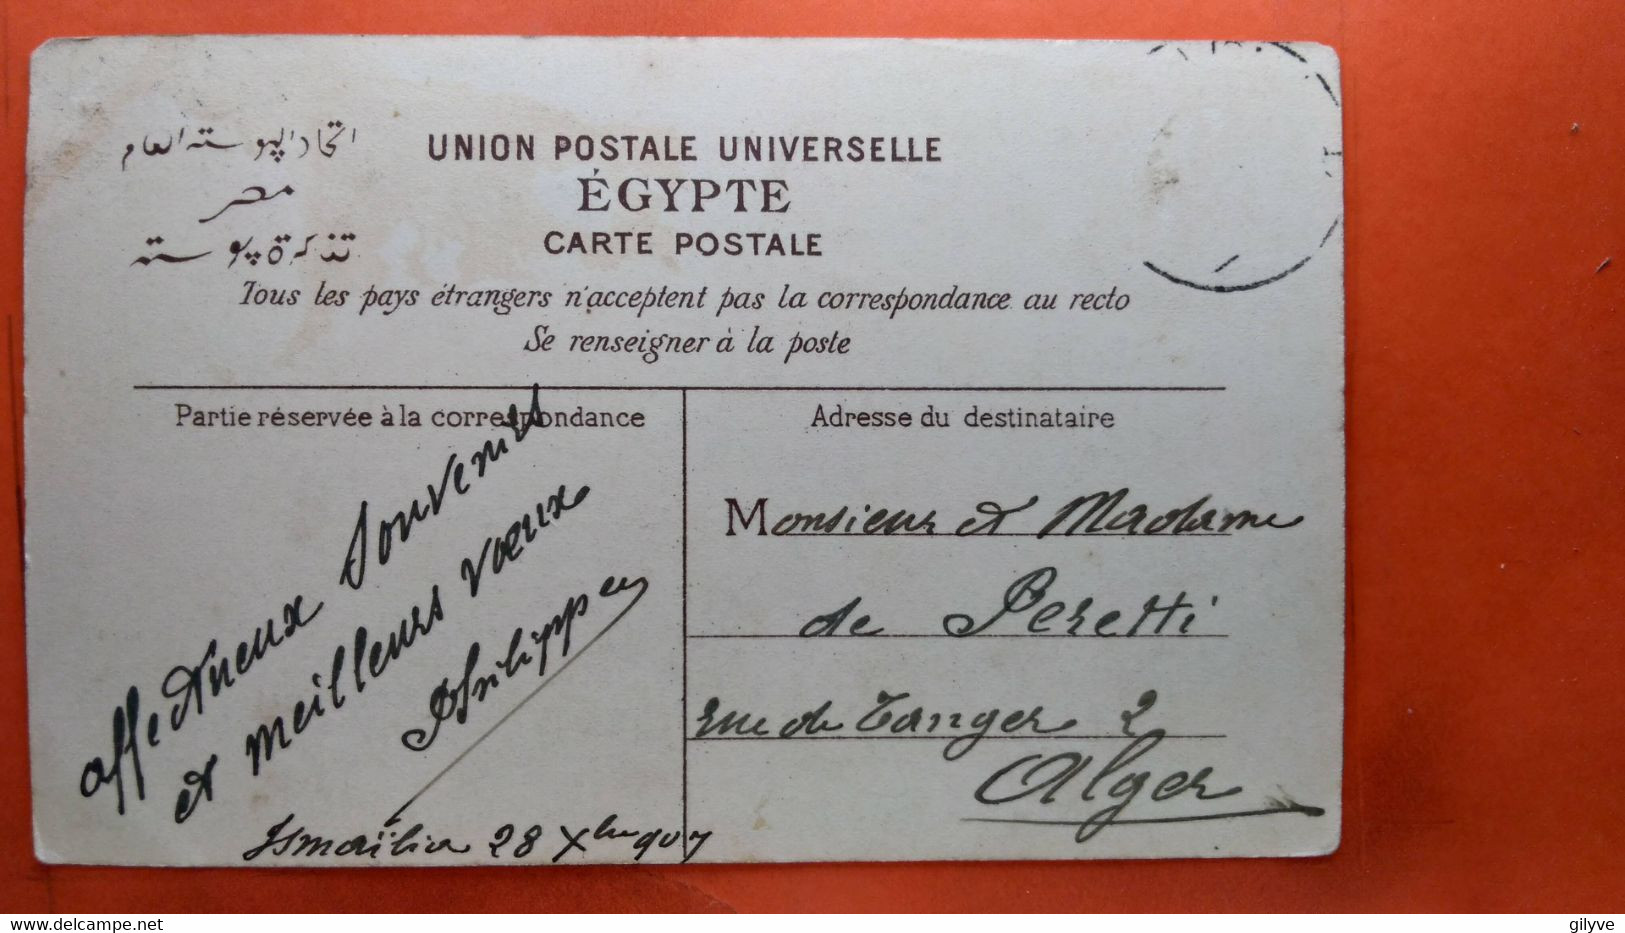 اتحاد البوسته العام
مصر
تذكرة بوسته
UNION POSTALE UNIVERSELLE
ÉGYPTE
CARTE POSTALE
Tous les pays étrangers n'acceptent pas la correspondance au recto
Se renseigner à la poste
Partie réservée à la correspondance
affectueux souvenirs
et meilleurs vœux
Ismaïlia 28 Xbre 907
Adresse du destinataire
Monsieur et Madame
de Peretti
rue de Tanger 2
Alger
gilyve